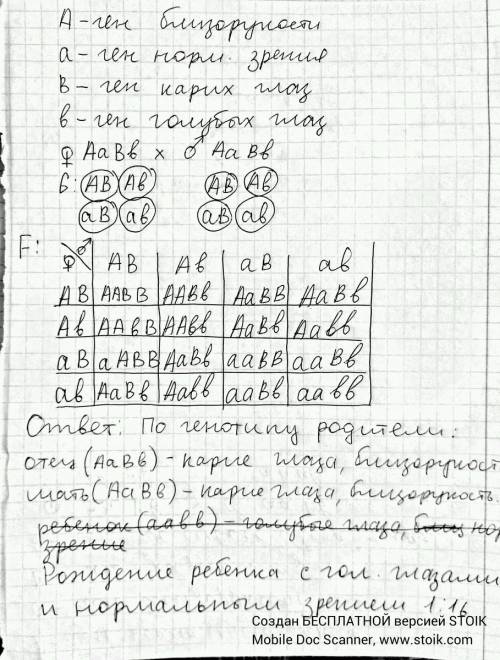 А-ген близорукости
а-ген норм. зрения
В-ген карих глаз
в-ген голубых глаз
♀ АаВв х ♂ АаВв
G: АВ Ав АВ Ав
аВ ав аВ ав
F:
♀ ♂ АВ Ав аВ ав
АВ ААВВ ААВв АаВВ АаВв
Ав ААвВ ААвв АаВв Аавв
аВ аАВВ АаВв ааВВ ааВв
ав АаВв Аавв ааВв аавв
Ответ: По генотипу родители:
отец (АаВв) - карие глаза, близорукост
мать (АаВв) - карие глаза, близорукость.
ребенок (аавв) - голубые глаза, близ нор
зрение
Рождение ребенка с гол. глазами
и нормальным зрением 1:16
Создан БЕСПЛАТНОЙ версией STOIK
Mobile Doc Scanner, www.stoik.com